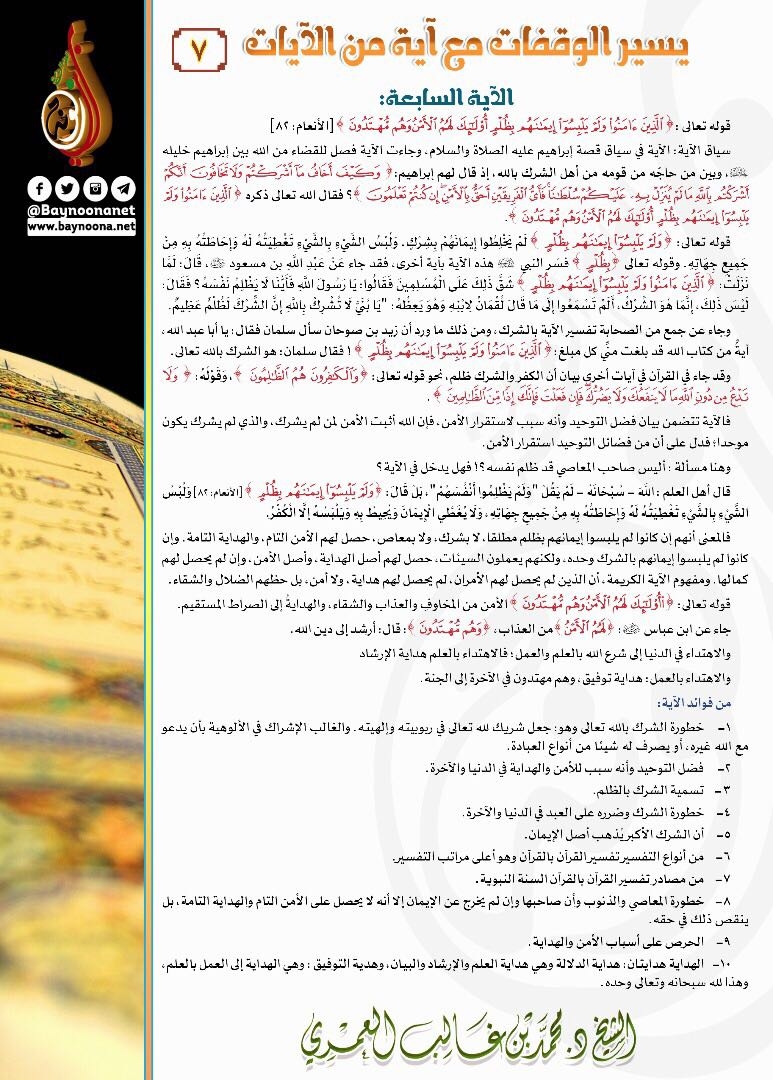 يسير الوقفات مع آية من الآيات
٧
الآية السابعة:
قوله تعالى: ﴿ ٱلَّذِينَ ءَامَنُوا۟ وَلَمْ يَلْبِسُوٓا۟ إِيمَـٰنَهُم بِظُلْمٍ أُو۟لَـٰٓئِكَ لَهُمُ ٱلْأَمْنُ وَهُم مُّهْتَدُونَ ﴾ [الأنعام: ٨٢]
سياق الآية: الآية في سياق قصة إبراهيم عليه الصلاة والسلام، وجاءت الآية فصل للقضاء من الله بين إبراهيم خليله
ﷺ، وبين من حاجّه من قومه من أهل الشرك بالله، إذ قال لهم إبراهيم: ﴿ وَكَيْفَ أَخَافُ مَآ أَشْرَكْتُمْ وَلَا تَخَافُونَ أَنَّكُمْ
أَشْرَكْتُم بِٱللَّهِ مَا لَمْ يُنَزِّلْ بِهِۦ عَلَيْكُمْ سُلْطَـٰنًا فَأَىُّ ٱلْفَرِيقَيْنِ أَحَقُّ بِٱلْأَمْنِ إِن كُنتُمْ تَعْلَمُونَ ﴾؟ فقال الله تعالى ذكره ﴿ ٱلَّذِينَ ءَامَنُوا۟ وَلَمْ
يَلْبِسُوٓا۟ إِيمَـٰنَهُم بِظُلْمٍ أُو۟لَـٰٓئِكَ لَهُمُ ٱلْأَمْنُ وَهُم مُّهْتَدُونَ ﴾.
قوله تعالى: ﴿ وَلَمْ يَلْبِسُوٓا۟ إِيمَـٰنَهُم بِظُلْمٍ ﴾ لَمْ يَخْلِطُوا إِيمَانَهُمْ بِشِرْكٍ. وَلَبْسُ الشَّيْءِ بِالشَّيْءِ تَغْطِيَتُهُ لَهُ وَإِحَاطَتُهُ بِهِ مِنْ
جَمِيعِ جِهَاتِهِ. وقوله تعالى ﴿بِظُلْمٍ ﴾ فسّر النبي ﷺ هذه الآية بآية أخرى، فقد جاء عَنْ عَبْدِ اللَّهِ بن مسعود ﷺ، قَالَ: لَمَّا
نَزَلَتْ: ﴿ ٱلَّذِينَ ءَامَنُوا۟ وَلَمْ يَلْبِسُوٓا۟ إِيمَـٰنَهُم بِظُلْمٍ ﴾ شَقَّ ذَلِكَ عَلَى الْمُسْلِمِينَ فَقَالُوا: يَا رَسُولَ اللَّهِ فَأَيُّنَا لَا يَظْلِمُ نَفْسَهُ؟ فَقَالَ:
لَيْسَ ذَلِكَ، إِنَّمَا هُوَ الشِّرْكُ، أَلَمْ تَسْمَعُوا إِلَى مَا قَالَ لُقْمَانُ لِابْنِهِ وَهُوَ يَعِظُهُ: "يَا بُنَيَّ لَا تُشْرِكْ بِاللَّهِ إِنَّ الشِّرْكَ لَظُلْمٌ عَظِيمٌ.
وجاء عن جمع من الصحابة تفسير الآية بالشرك، ومن ذلك ما ورد أن زيد بن صوحان سأل سلمان فقال: يا أبا عبد الله،
آيةٌ من كتاب الله قد بلغت منِّي كل مبلغ: ﴿ ٱلَّذِينَ ءَامَنُوا۟ وَلَمْ يَلْبِسُوٓا۟ إِيمَـٰنَهُم بِظُلْمٍ ﴾ ! فقال سلمان: هو الشرك بالله تعالى.
وقد جاء في القرآن في آيات أخرى بيان أن الكفر والشرك ظلم، نحو قوله تعالى: ﴿وَٱلْكَـٰفِرُونَ هُمُ ٱلظَّـٰلِمُونَ ﴾، وَقَوْلُهُ: ﴿ وَلَا
تَدْعُ مِن دُونِ ٱللَّهِ مَا لَا يَنفَعُكَ وَلَا يَضُرُّكَ فَإِن فَعَلْتَ فَإِنَّكَ إِذًا مِّنَ ٱلظَّـٰلِمِينَ ﴾.
فالآية تتضمن بيان فضل التوحيد وأنه سبب لاستقرار الأمن، فإن الله أثبت الأمن لمن لم يشرك، والذي لم يشرك يكون
موحدا؛ فدل على أن من فضائل التوحيد استقرار الأمن.
وهنا مسألة : أليس صاحب المعاصي قد ظلم نفسه؟! فهل يدخل في الآية؟
قال أهل العلم : اللَّهَ - سُبْحَانَهُ - لَمْ يَقُلْ "وَلَمْ يَظْلِمُوا أَنْفُسَهُمْ"، بَلْ قَالَ: ﴿وَلَمْ يَلْبِسُوٓا۟ إِيمَـٰنَهُم بِظُلْمٍ ﴾ [الأنعام: ٨٢] وَلَبْسُ
الشَّيْءِ بِالشَّيْءِ تَغْطِيَتُهُ لَهُ وَإِحَاطَتُهُ بِهِ مِنْ جَمِيعِ جِهَاتِهِ، وَلَا يُغَطِّي الْإِيمَانَ وَيُحِيطُ بِهِ وَيَلْبَسُهُ إِلَّا الْكُفْرُ.
فالمعنى أنهم إن كانوا لم يلبسوا إيمانهم بظلم مطلقا، لا بشرك، ولا بمعاص، حصل لهم الأمن التام، والهداية التامة. وإن
كانوا لم يلبسوا إيمانهم بالشرك وحده، ولكنهم يعملون السيئات، حصل لهم أصل الهداية، وأصل الأمن، وإن لم يحصل لهم
كمالها. ومفهوم الآية الكريمة، أن الذين لم يحصل لهم الأمران، لم يحصل لهم هداية، ولا أمن، بل حظهم الضلال والشقاء.
قوله تعالى: ﴿أُو۟لَـٰٓئِكَ لَهُمُ ٱلْأَمْنُ وَهُم مُّهْتَدُونَ ﴾ الأمن من المخاوفِ والعذاب والشقاء، والهدايةُ إلى الصراط المستقيم.
جاء عن ابن عباس ﷺ: ﴿لَهُمُ ٱلْأَمْنُ ﴾ من العذاب، ﴿وَهُم مُّهْتَدُونَ ﴾: قال: أرشد إلى دين الله.
والاهتداء في الدنيا إلى شرع الله بالعلم والعمل؛ فالاهتداء بالعلم هداية الإرشاد
والاهتداء بالعمل: هداية توفيق، وهم مهتدون في الآخرة إلى الجنة.
من فوائد الآية:
١- خطورة الشرك بالله تعالى وهو: جعل شريك لله تعالى في ربوبيته وإلهيته. والغالب الإشراك في الألوهية بأن يدعو
مع الله غيره، أو يصرف له شيئا من أنواع العبادة.
٢- فضل التوحيد وأنه سبب للأمن والهداية في الدنيا والآخرة.
٣- تسمية الشرك بالظلم.
٤- خطورة الشرك وضرره على العبد في الدنيا والآخرة.
٥- أن الشرك الأكبر يُذهب أصل الإيمان.
٦- من أنواع التفسير تفسير القرآن بالقرآن وهو أعلى مراتب التفسير.
٧- من مصادر تفسير القرآن بالقرآن السنة النبوية.
٨- خطورة المعاصي والذنوب وأن صاحبها وإن لم يخرج عن الإيمان إلا أنه لا يحصل على الأمن التام والهداية التامة، بل
ينقص ذلك في حقه.
٩- الحرص على أسباب الأمن والهداية.
١٠- الهداية هدايتان: هداية الدلالة وهي هداية العلم والإرشاد والبيان، وهدية التوفيق : وهي الهداية إلى العمل بالعلم،
وهذا لله سبحانه وتعالى وحده.
الشيخ د. محمد بن غالب العمري
@Baynoonanet
www.baynoona.net